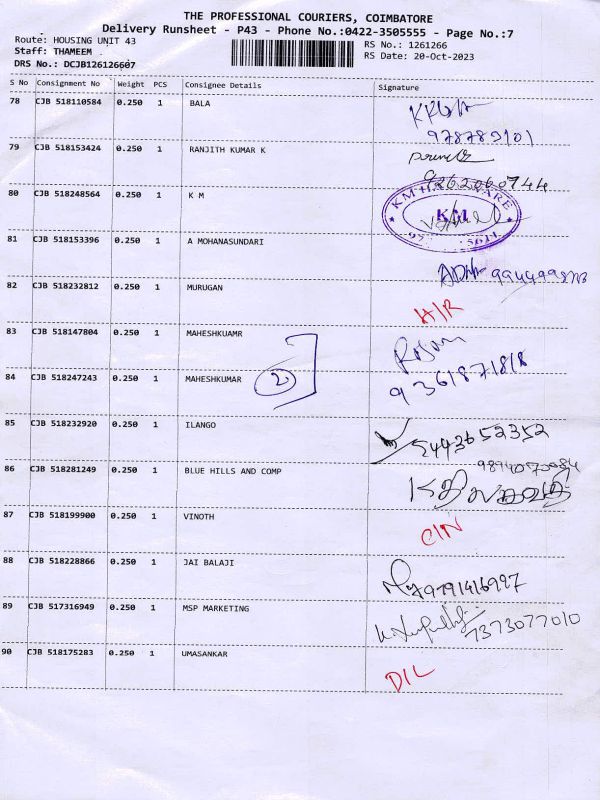 THE PROFESSIONAL COURIERS, COIMBATORE
Delivery Runsheet - P43 - Phone No.:0422-3505555 - Page No.:7
Route: HOUSING UNIT 43 RS No.: 1261266
Staff: THAMEEM . RS Date: 20-Oct-2023
DRS No.: DCJB126126607
S No Consignment No Weight PCS Consignee Details Signature
78 CJB 518110584 0.250 1 BALA
79 CJB 518153424 0.250 1 RANJITH KUMAR K
9262060744
80 CJB 518248564 0.250 1 K M
81 CJB 518153396 0.250 1 A MOHANASUNDARI
82 CJB 518232812 0.250 1 MURUGAN
H/R
83 CJB 518147804 0.250 1 MAHESHKUAMR
84 CJB 518247243 0.250 1 MAHESHKUMAR 2 9361871818
85 CJB 518232920 0.250 1 ILANGO
9443652352
86 CJB 518281249 0.250 1 BLUE HILLS AND COMP
87 CJB 518199900 0.250 1 VINOTH
C/N
88 CJB 518228866 0.250 1 JAI BALAJI
9791416997
89 CJB 517316949 0.250 1 MSP MARKETING
7373077010
90 CJB 518175283 0.250 1 UMASANKAR
D/L